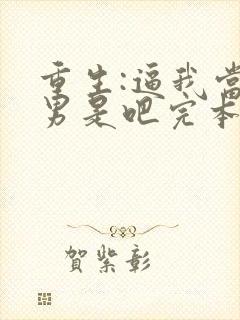 重生:逼我當
男是吧完本
賀紫彰